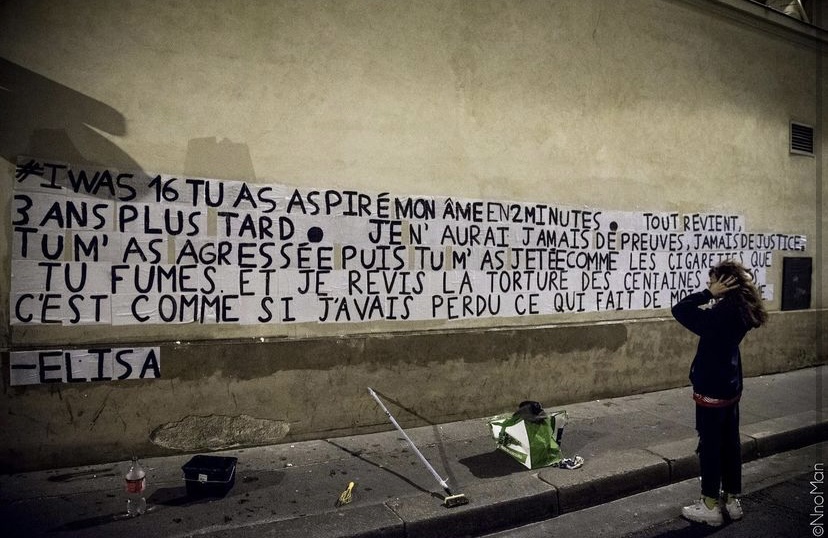 #I WAS 16 TU AS ASPIRÉ MON ÂME EN 2 MINUTES. TOUT REVIENT,
3 ANS PLUS TARD. JE N'AURAI JAMAIS DE PREUVES, JAMAIS DE JUSTICE,
TU M'AS AGRESSÉE PUIS TU M'AS JETÉE COMME LES CIGARETTES QUE
TU FUMES. ET JE REVIS LA TORTURE DES CENTAINES
C'EST COMME SI J'AVAIS PERDU CE QUI FAIT DE
-ELISA
©NnoMan